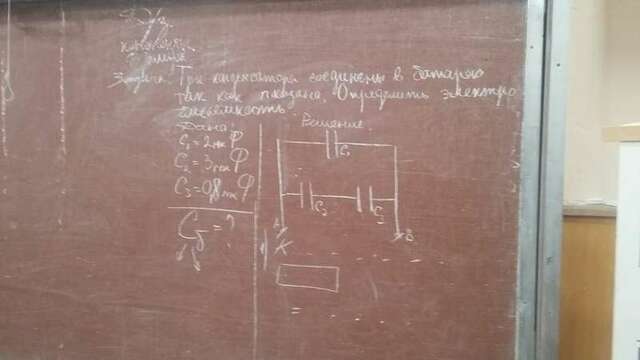 Д/з.
Задача: Три конденсатора соединены в батарею
так как показано. Определить электро
емкость.
Дано:
C₁ = 2 мкФ
C₂ = 3 мкФ
C₃ = 0,8 мкФ
C = ?
Решение
C₁
C₂
A
B
=